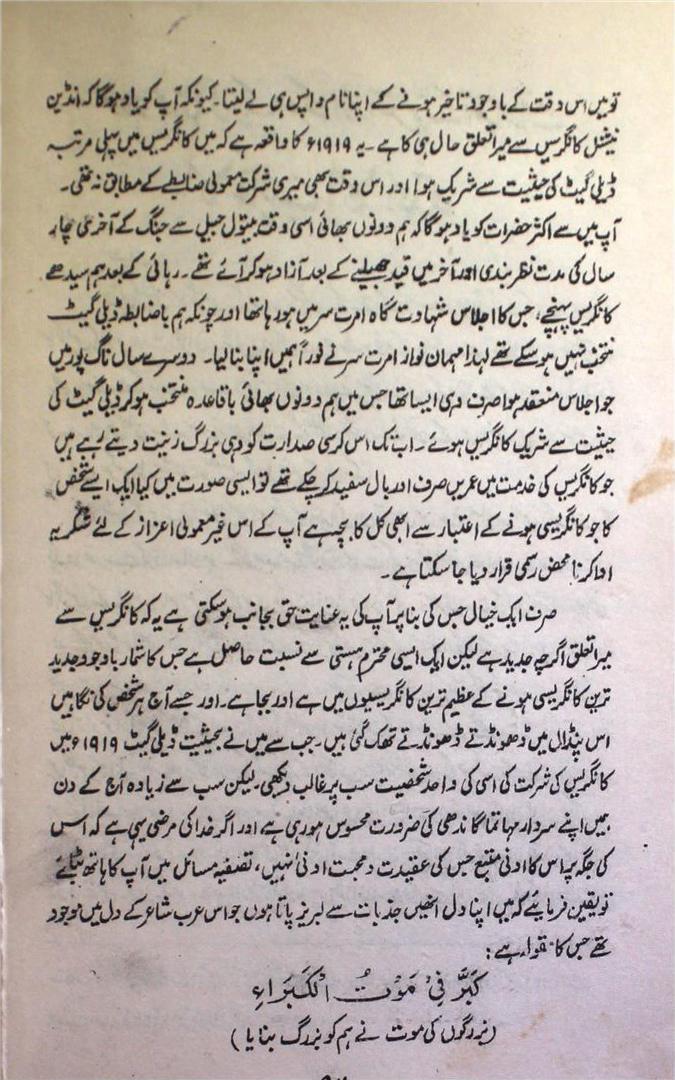 تو میں اس وقت کے باوجود تاخیر ہونے کے اپنا نام واپس ہی لے لیتا۔ کیونکہ آپ کو یاد ہوگا کہ انڈین
نیشنل کانگریس سے میرا تعلق حال ہی کا ہے۔ یہ ۱۹۱۹ء کا واقعہ ہے کہ میں کانگریس میں پہلی مرتبہ
ڈیلی گیٹ کی حیثیت سے شریک ہوا اور اس وقت بھی میری شرکت معمولی ضابطے کے مطابق نہ تھی۔
آپ میں سے اکثر حضرات کو یاد ہوگا کہ ہم دونوں بھائی اسی وقت بیتول جیل سے جنگ کے آخری چار
سال کی مدت نظر بندی اور آخر میں قید جھیلنے کے بعد آزاد ہو کر آئے تھے۔ رہائی کے بعد ہم سیدھے
کانگریس پہنچے، جس کا اجلاس شہادت گاہ امرت سر میں ہو رہا تھا اور چونکہ ہم باضابطہ ڈیلی گیٹ
منتخب نہیں ہو سکے تھے لہذا مہمان نواز امرت سر نے فوراً ہمیں اپنا بنا لیا۔ دوسرے سال ناگ پور میں
جو اجلاس منعقد ہوا صرف وہی ایسا تھا جس میں ہم دونوں بھائی باقاعدہ منتخب ہو کر ڈیلی گیٹ کی
حیثیت سے شریک کانگریس ہوئے۔ اب تک اس کرسی صدارت کو وہی بزرگ زینت دیتے رہے ہیں
جو کانگریس کی خدمت میں عمریں صرف اور بال سفید کر چکے تھے تو ایسی صورت میں کیا ایک ایسے شخص
کا جو کانگریسی ہونے کے اعتبار سے ابھی کل کا بچہ ہے آپ کے اس غیر معمولی اعزاز کے لئے شکریہ
ادا کرنا محض رسمی قرار دیا جا سکتا ہے۔
صرف ایک خیال جس کی بنا پر آپ کی یہ عنایت حق بجانب ہو سکتی ہے یہ کہ کانگریس سے
میرا تعلق اگرچہ جدید ہے لیکن ایک ایسی محترم ہستی سے نسبت حاصل ہے جس کا شمار باوجود جدید
ترین کانگریسی ہونے کے عظیم ترین کانگریسیوں میں ہے اور بجا ہے۔ اور جسے آج ہر شخص کی نگاہیں
اس پنڈال میں ڈھونڈتے ڈھونڈتے تھک گئی ہیں۔ جب سے میں نے بحیثیت ڈیلی گیٹ ۱۹۱۹ء میں
کانگریس کی شرکت کی اسی کی واحد شخصیت سب پر غالب دیکھی۔ لیکن سب سے زیادہ آج کے دن
ہمیں اپنے سردار مہاتما گاندھی کی ضرورت محسوس ہو رہی ہے اور اگر خدا کی مرضی یہی ہے کہ اس
کی جگہ پر اس کا ادنیٰ متبع جس کی عقیدت و محبت ادنیٰ نہیں، تصفیہ مسائل میں آپ کا ہاتھ بٹائے
تو یقین فرمایئے کہ میں اپنا دل انھیں جذبات سے لبریز پاتا ہوں جو اس عرب شاعر کے دل میں موجود
تھے جس کا مقولہ ہے:
كَبَّرَ فِيْ مَوْتُ الْكَبَرَاءِ
(بزرگوں کی موت نے ہم کو بزرگ بنایا)